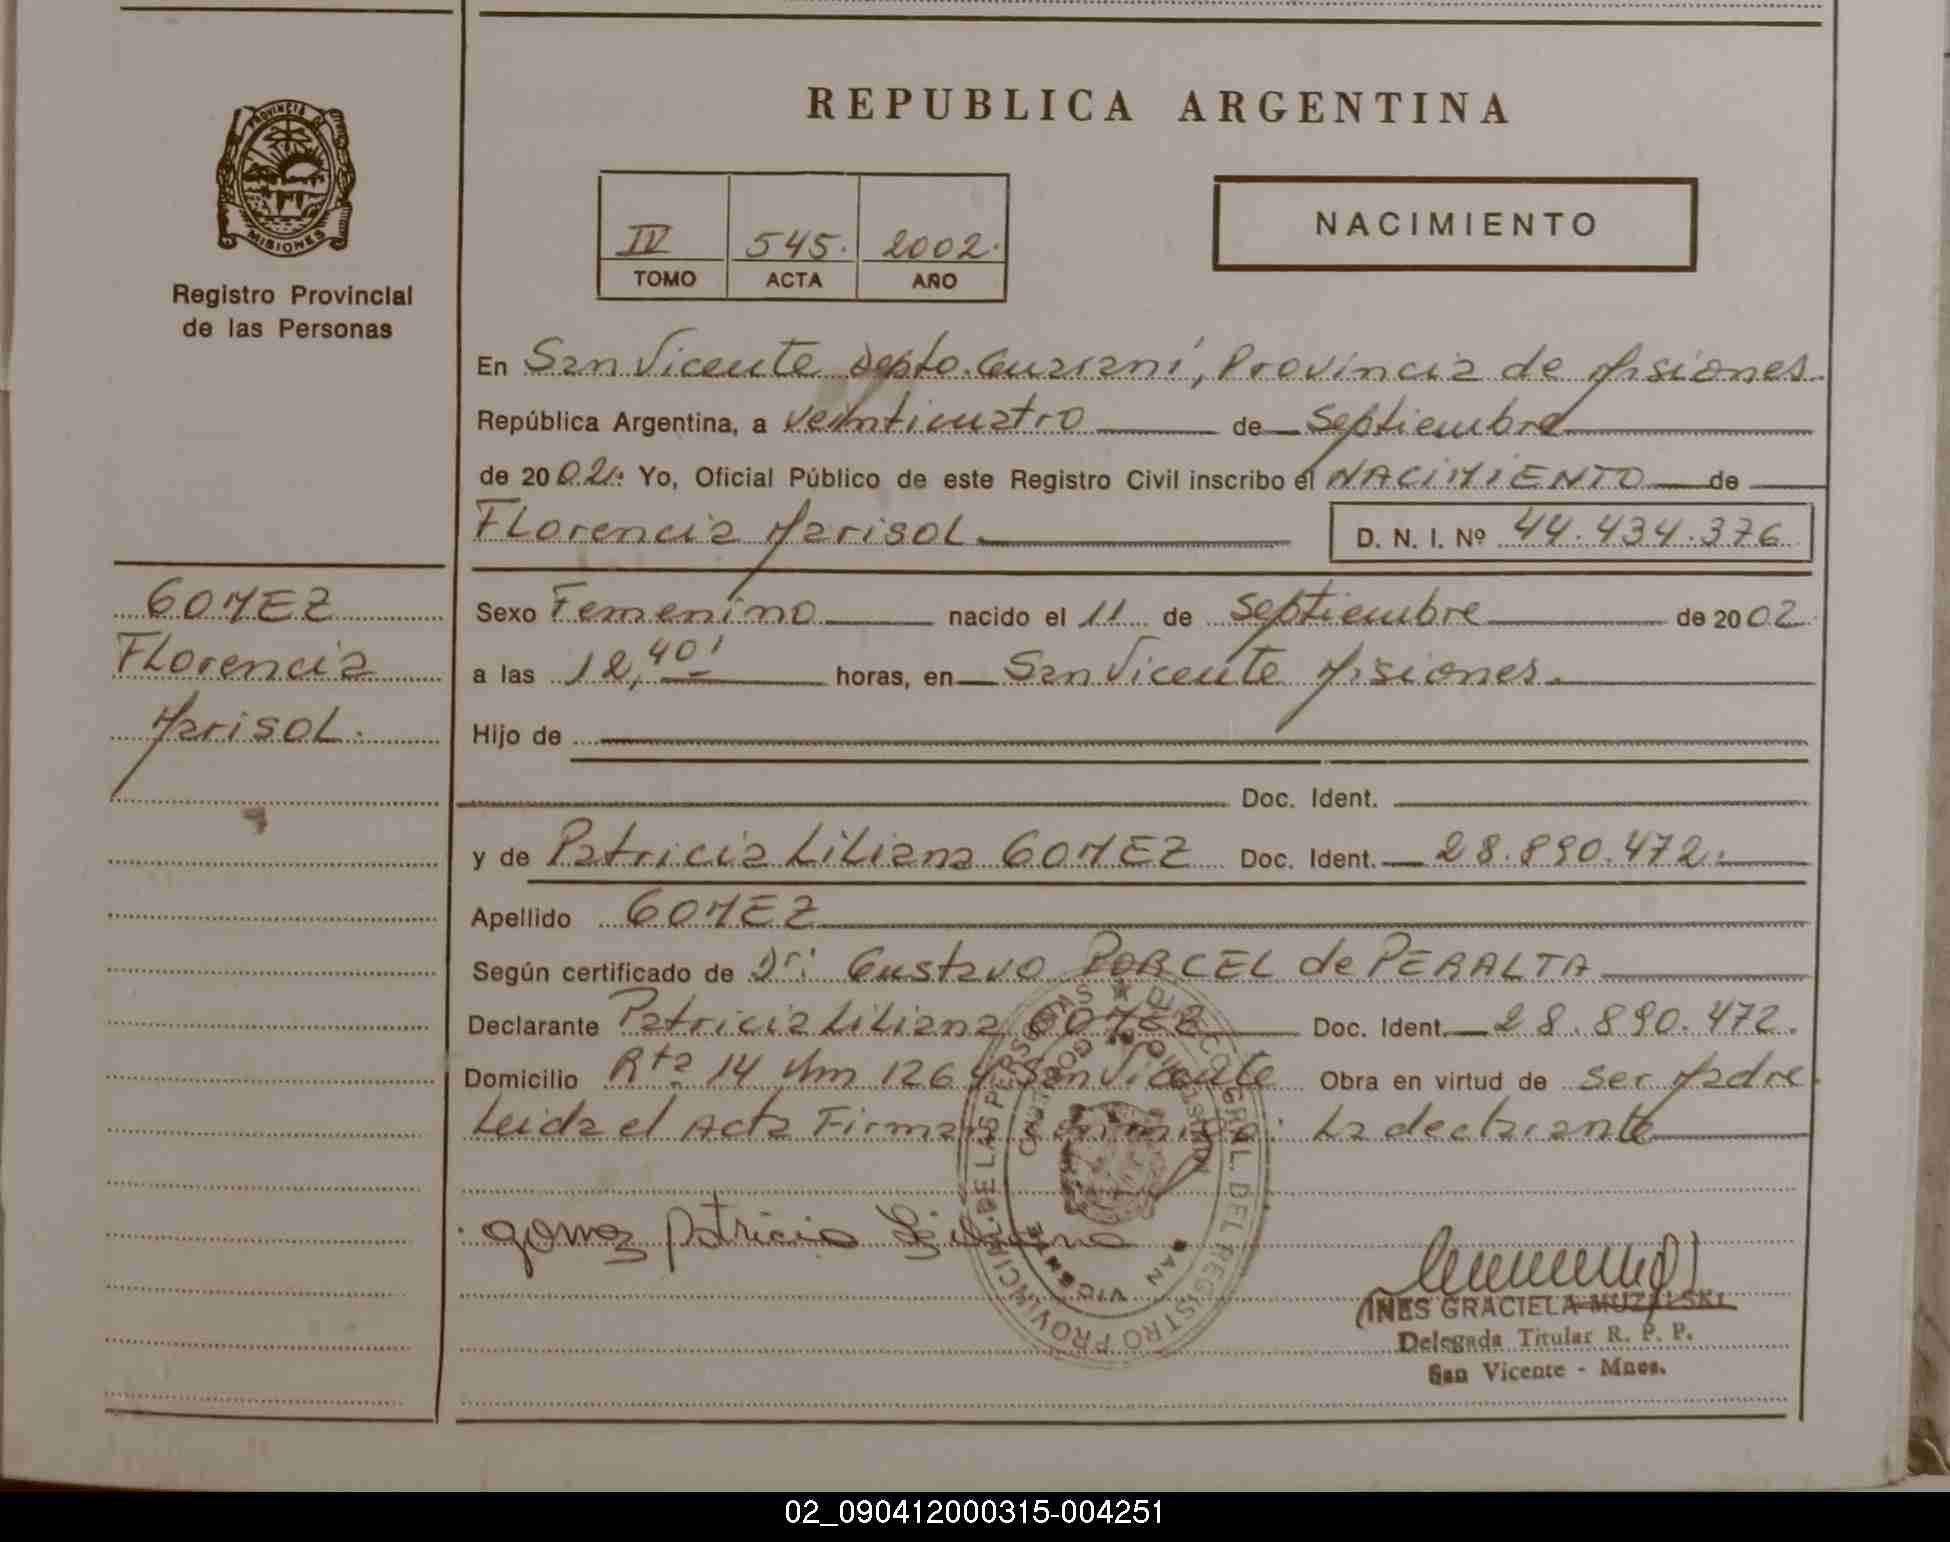 REPUBLICA ARGENTINA
PROVINCIA DE
MISIONES
Registro Provincial
de las Personas
IV 545. 2002.
TOMO ACTA AÑO
NACIMIENTO
En San Vicente Depto. Guaraní, Provincia de Misiones.
República Argentina, a veinticuatro de Septiembre
de 2002. Yo, Oficial Público de este Registro Civil inscribo el NACIMIENTO de
Florencia Marisol D. N. I. Nº 44.434.376
GOMEZ
Florencia
Marisol.
Sexo Femenino nacido el 11 de Septiembre de 2002
a las 12,40' horas, en San Vicente Misiones.
Hijo de
Doc. Ident.
y de Patricia Liliana GOMEZ Doc. Ident. 28.890.472.
Apellido GOMEZ
Según certificado de Dr: Gustavo PORCEL de PERALTA
Declarante Patricia Liliana GOMEZ Doc. Ident. 28.890.472.
Domicilio Rta 14 Km 1264 San Vicente Obra en virtud de ser Madre.
Leida el Acta Firman conmigo: La declarante
gomez patricia Liliana
DCCION GRAL. DEL REGISTRO PROVINCIAL DE LAS PERSONAS
MINISTERIO DE GOBIERNO
SAN VICENTE
INES GRACIELA MUZALSKI
Delegada Titular R. P. P.
San Vicente - Mnes.
02_090412000315-004251